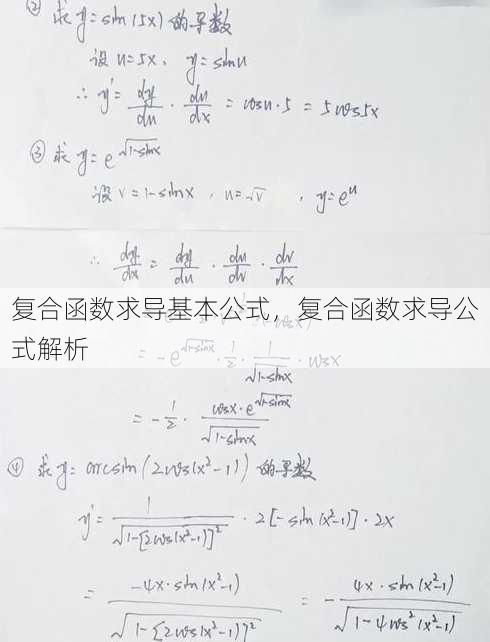 ② 求 y=sin(5x) 的导数
设 u=5x, y=sinu
∴ y'= dy/du · du/dx = cosu·5 = 5cos5x
③ 求 y=e^√(1-sinx)
设 v=1-sinx, u=√v, y=e^u
∴ dy/dx = dy/du · du/dv · dv/dx
复合函数求导基本公式，复合函数求导公
式解析
= -e^√(1-sinx) · 1/2 · 1/√(1-sinx) · cosx
= -1/2 · cosx·e^√(1-sinx)/√(1-sinx)
④ 求 y=arcsin(2cos(x²-1)) 的导数
y'= 1/√(1-[2cos(x²-1)]²) · 2[-sin(x²-1)]·2x
= -4x·sin(x²-1)/√(1-[2cos(x²-1)]²) = - 4x·sin(x²-1)/√(1-4cos²(x²-1))